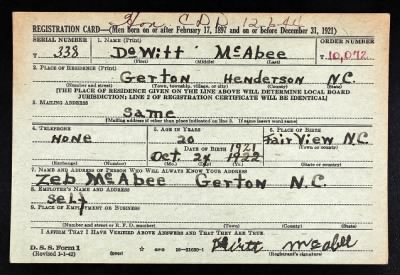 Hon. C.D.D. 12-2-41
REGISTRATION CARD—(Men born on or after February 17, 1897 and on or before December 31, 1921)
SERIAL NUMBER 1. NAME (Print) ORDER NUMBER
T 338 DeWitt McAbee T 10,072
(First) (Middle) (Last)
2. PLACE OF RESIDENCE (Print)
Gerton Henderson N.C.
(Number and street) (Town, township, village, or city) (County) (State)
[THE PLACE OF RESIDENCE GIVEN ON THE LINE ABOVE WILL DETERMINE LOCAL BOARD
JURISDICTION; LINE 2 OF REGISTRATION CERTIFICATE WILL BE IDENTICAL]
3. MAILING ADDRESS
Same
[Mailing address if other than place indicated on line 2. If same insert word same]
4. TELEPHONE 5. AGE IN YEARS 6. PLACE OF BIRTH
None 20 Fair View N.C.
DATE OF BIRTH 1921
Oct. 24 1922
(Exchange) (Number) (Mo.) (Day) (Yr.) (Town or county) (State or country)
7. NAME AND ADDRESS OF PERSON WHO WILL ALWAYS KNOW YOUR ADDRESS
Zeb McAbee Gerton N.C.
8. EMPLOYER'S NAME AND ADDRESS
Self
9. PLACE OF EMPLOYMENT OR BUSINESS
(Number and street or R. F. D. number) (Town) (County) (State)
I AFFIRM THAT I HAVE VERIFIED ABOVE ANSWERS AND THAT THEY ARE TRUE.
D. S. S. Form 1
(Revised 1-1-42) (over) DeWitt McAbee
(Registrant's signature)